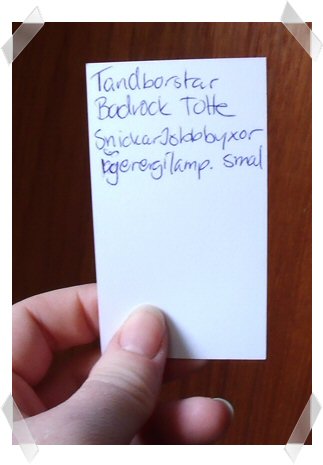 Tandborstar
Badrock Totte
SnickarJobbbyxor
lågenergilamp. smal